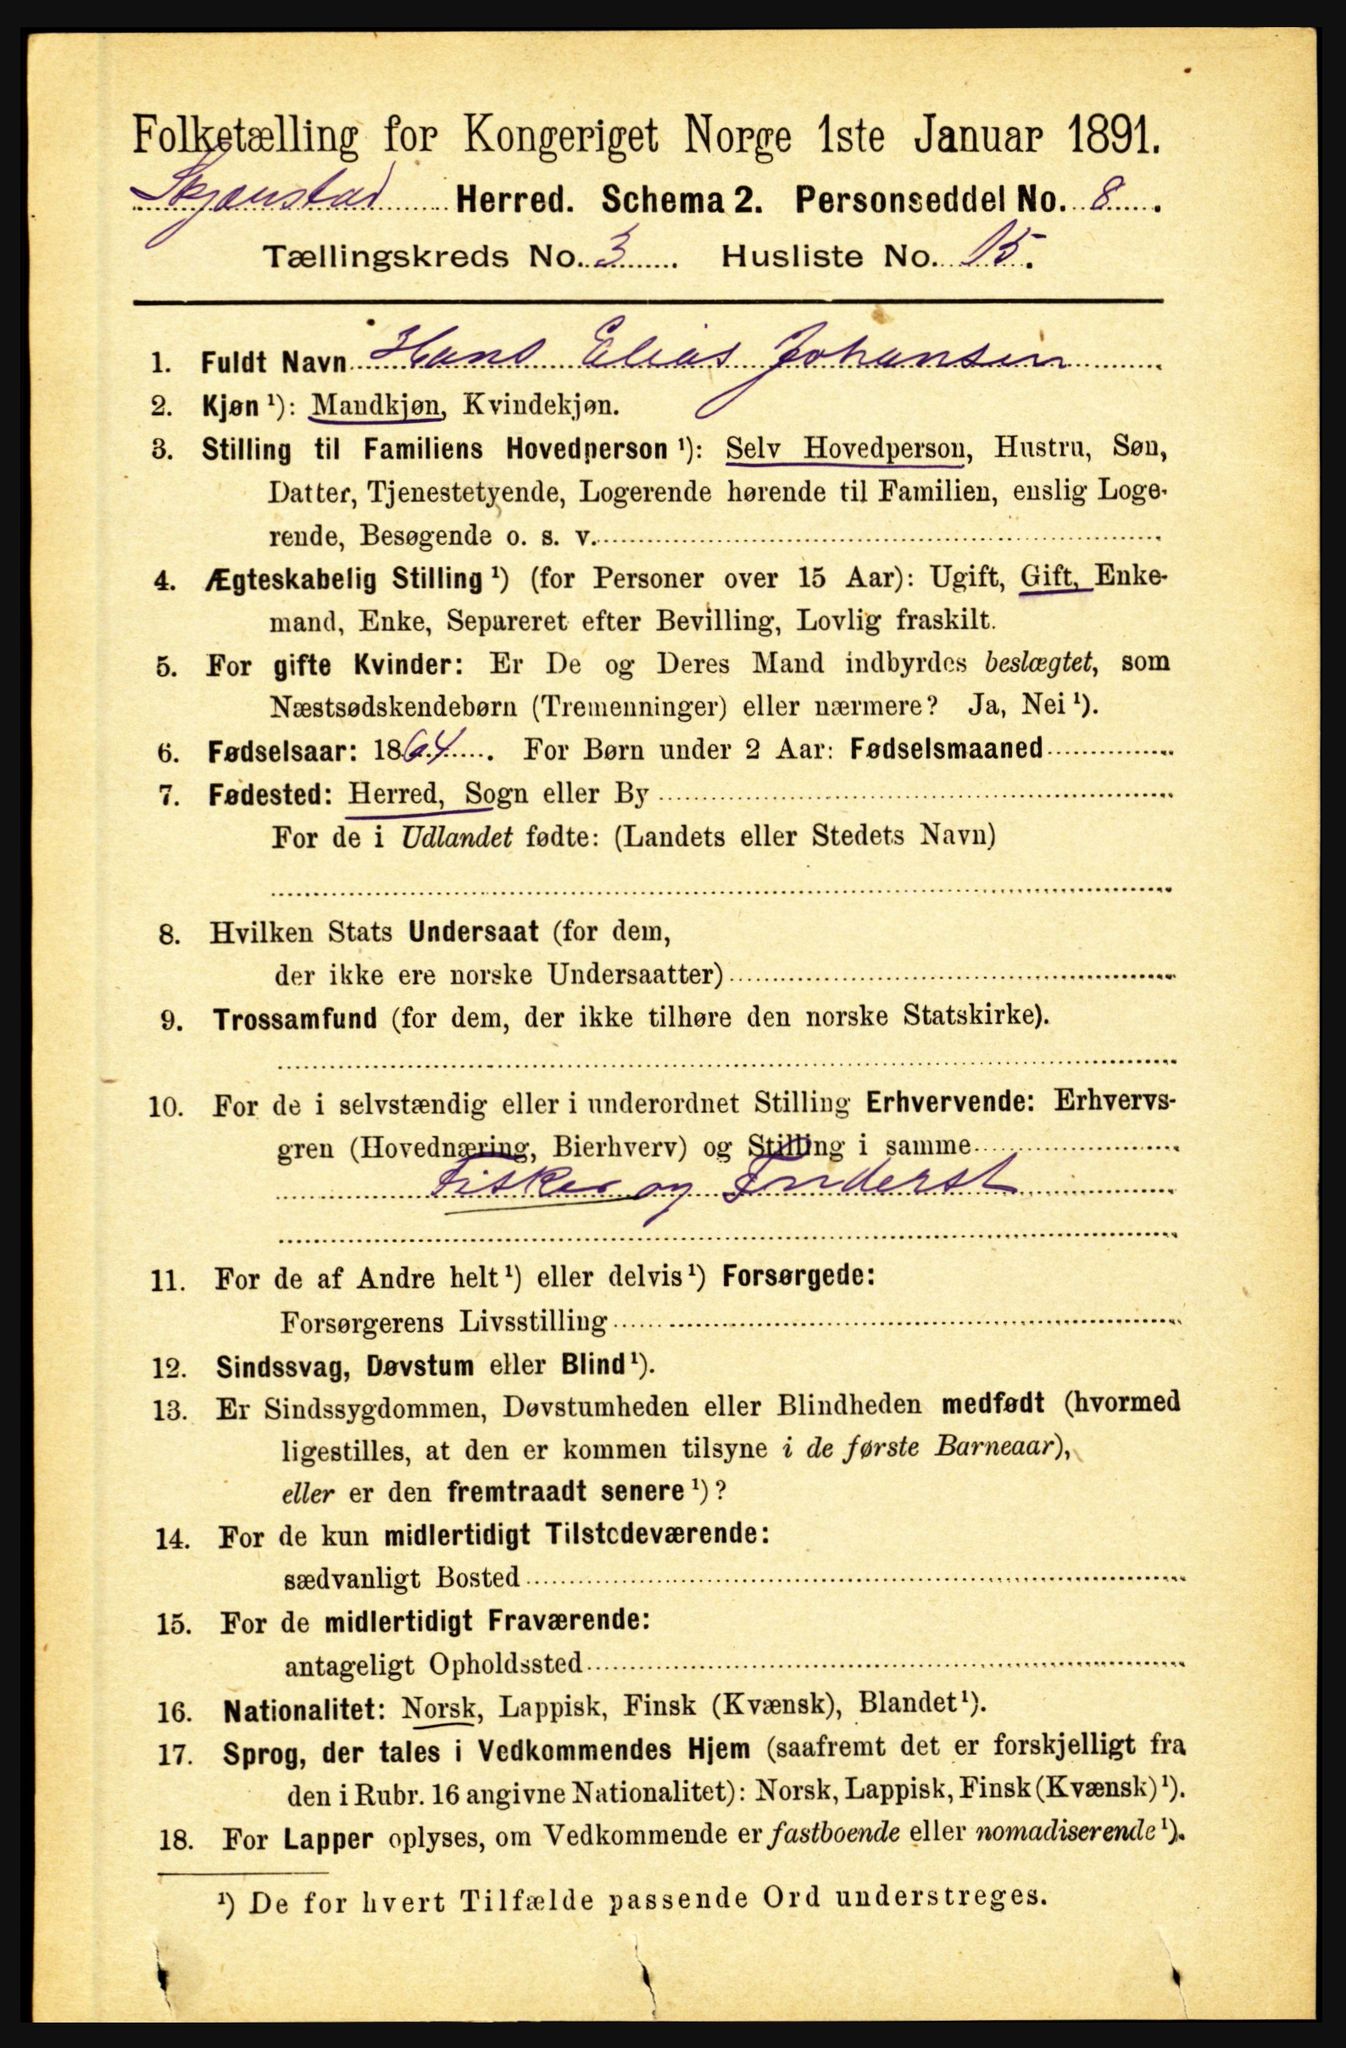 Folketælling for Kongeriget Norge 1ste Januar 1891.
Skjærstad Herred. Schema 2. Personseddel No. 8.
Tællingskreds No. 3. Husliste No. 15.
1. Fuldt Navn Hans Elias Johansen
2. Kjøn ¹): Mandkjøn, Kvindekjøn.
3. Stilling til Familiens Hovedperson ¹): Selv Hovedperson, Hustru, Søn,
Datter, Tjenestetyende, Logerende hørende til Familien, enslig Loge-
rende, Besøgende o. s. v.
4. Ægteskabelig Stilling ¹) (for Personer over 15 Aar): Ugift, Gift, Enke-
mand, Enke, Separeret efter Bevilling, Lovlig fraskilt.
5. For gifte Kvinder: Er De og Deres Mand indbyrdes beslægtet, som
Næstsødskendebørn (Tremenninger) eller nærmere? Ja, Nei ¹).
6. Fødselsaar: 1864. For Børn under 2 Aar: Fødselsmaaned
7. Fødested: Herred, Sogn eller By
For de i Udlandet fødte: (Landets eller Stedets Navn)
8. Hvilken Stats Undersaat (for dem,
der ikke ere norske Undersaatter)
9. Trossamfund (for dem, der ikke tilhøre den norske Statskirke).
10. For de i selvstændig eller i underordnet Stilling Erhvervende: Erhvervs-
gren (Hovednæring, Bierhverv) og Stilling i samme
Fisker og Inderst
11. For de af Andre helt ¹) eller delvis ¹) Forsørgede:
Forsørgerens Livsstilling
12. Sindssvag, Døvstum eller Blind ¹).
13. Er Sindssygdommen, Døvstumheden eller Blindheden medfødt (hvormed
ligestilles, at den er kommen tilsyne i de første Barneaar),
eller er den fremtraadt senere ¹)?
14. For de kun midlertidigt Tilstedeværende:
sædvanligt Bosted
15. For de midlertidigt Fraværende:
antageligt Opholdssted
16. Nationalitet: Norsk, Lappisk, Finsk (Kvænsk), Blandet ¹).
17. Sprog, der tales i Vedkommendes Hjem (saafremt det er forskjelligt fra
den i Rubr. 16 angivne Nationalitet): Norsk, Lappisk, Finsk (Kvænsk) ¹).
18. For Lapper oplyses, om Vedkommende er fastboende eller nomadiserende ¹).
¹) De for hvert Tilfælde passende Ord understreges.